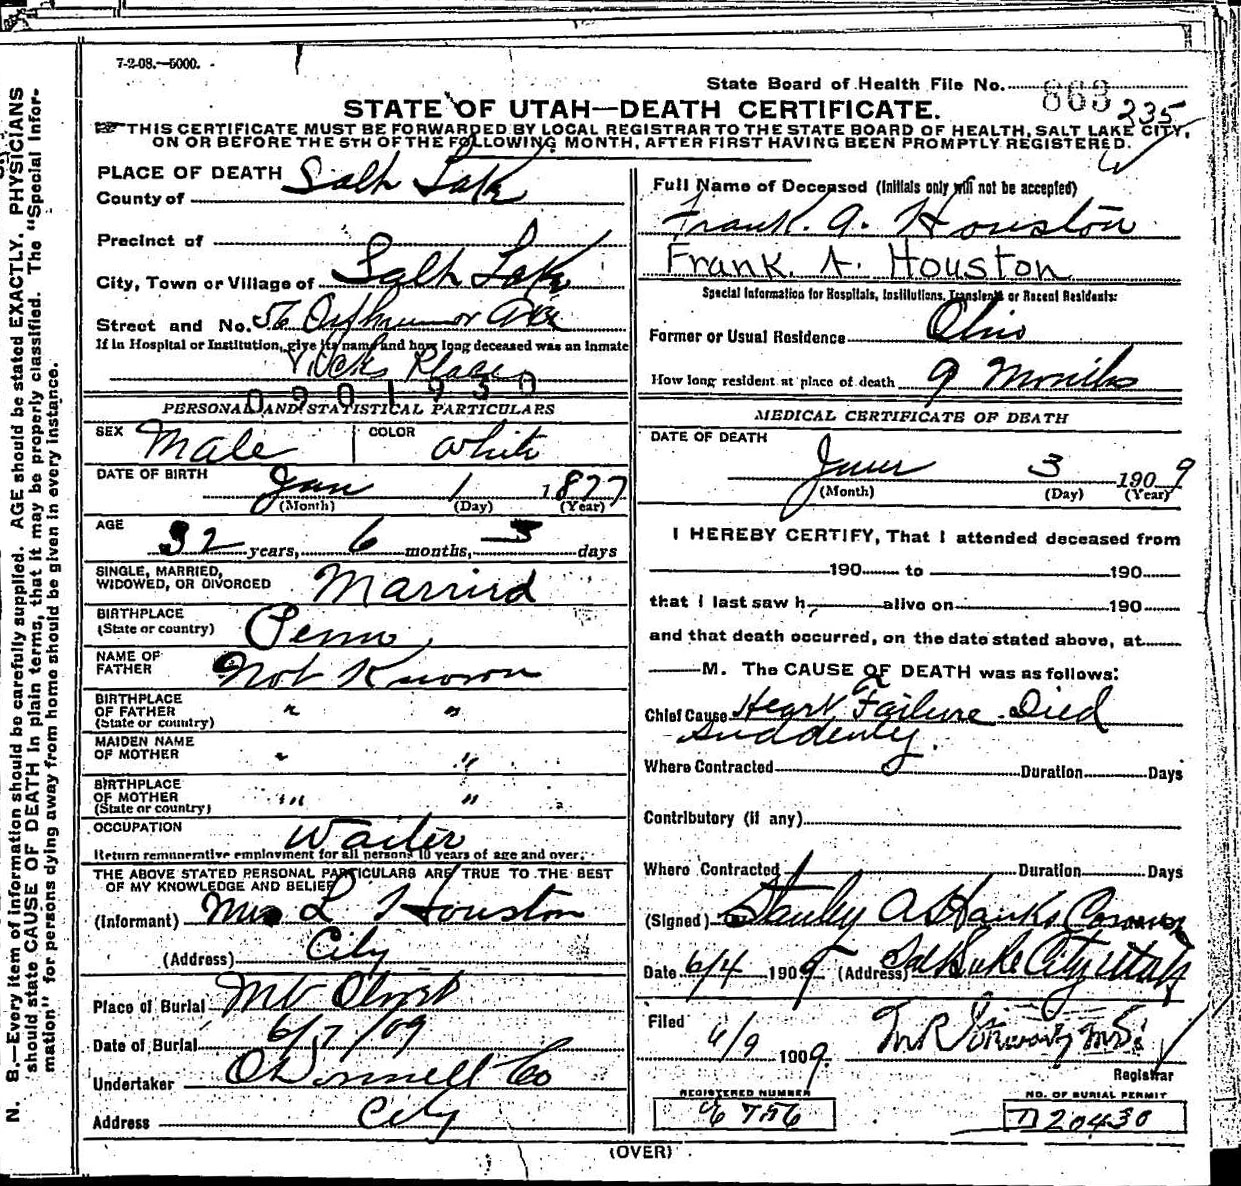 7-2-08.—5000.
State Board of Health File No. 863
235
STATE OF UTAH—DEATH CERTIFICATE.
THIS CERTIFICATE MUST BE FORWARDED BY LOCAL REGISTRAR TO THE STATE BOARD OF HEALTH, SALT LAKE CITY,
ON OR BEFORE THE 5TH OF THE FOLLOWING MONTH, AFTER FIRST HAVING BEEN PROMPTLY REGISTERED.
N. B.—Every item of information should be carefully supplied. AGE should be stated EXACTLY. PHYSICIANS
should state CAUSE OF DEATH in plain terms, that it may be properly classified. The "Special Infor-
mation" for persons dying away from home should be given in every instance.
PLACE OF DEATH
County of Salt Lake
Precinct of
City, Town or Village of Salt Lake
Street and No. 56
If in Hospital or Institution, give its name and how long deceased was an inmate
Place
0901930
PERSONAL AND STATISTICAL PARTICULARS
SEX Male COLOR White
DATE OF BIRTH Jan 1 1877
(Month) (Day) (Year)
AGE
32 years, 6 months, 3 days
SINGLE, MARRIED,
WIDOWED, OR DIVORCED Married
BIRTHPLACE
(State or country) Penn
NAME OF
FATHER Not Known
BIRTHPLACE
OF FATHER " "
(State or country)
MAIDEN NAME
OF MOTHER " "
BIRTHPLACE
OF MOTHER " "
(State or country)
OCCUPATION Waiter
Return remunerative employment for all persons 10 years of age and over:
THE ABOVE STATED PERSONAL PARTICULARS ARE TRUE TO THE BEST
OF MY KNOWLEDGE AND BELIEF
(Informant) Mrs L Houston
(Address) City
Place of Burial Mt Olivet
Date of Burial 6/7/09
Undertaker O'Donnell Co
Address City
Full Name of Deceased (Initials only will not be accepted)
Frank. A. Houston
Frank. A. Houston
Special Information for Hospitals, Institutions, Transients or Recent Residents:
Former or Usual Residence Ohio
How long resident at place of death 9 Months
MEDICAL CERTIFICATE OF DEATH
DATE OF DEATH
June 3 1909
(Month) (Day) (Year)
I HEREBY CERTIFY, That I attended deceased from
190 to 190
that I last saw h alive on 190
and that death occurred, on the date stated above, at
M. The CAUSE OF DEATH was as follows:
Chief Cause Heart Failure. Died
Suddenly.
Where Contracted Duration Days
Contributory (if any)
Where Contracted Duration Days
(Signed) Stanley A Hanks Coroner
Date 6/4 1909 (Address) Salt Lake City Utah
Filed
6/9 1909. M R Stewart M.D.
Registrar
REGISTERED NUMBER
NO. OF BURIAL PERMIT
D 20430
(OVER)